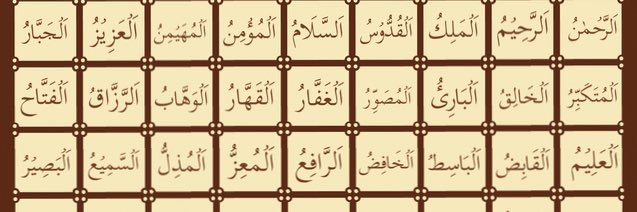 اَلرَّحْمٰنُ اَلرَّحِيْمُ اَلْمَلِكُ اَلْقُدُّوْسُ اَلسَّلَامُ اَلْمُؤْمِنُ اَلْمُهَيْمِنُ اَلْعَزِيْزُ اَلْجَبَّارُ
اَلْمُتَكَبِّرُ اَلْخَالِقُ اَلْبَارِئُ اَلْمُصَوِّرُ اَلْغَفَّارُ اَلْقَهَّارُ اَلْوَهَّابُ اَلرَّزَّاقُ اَلْفَتَّاحُ
اَلْعَلِيْمُ اَلْقَابِضُ اَلْبَاسِطُ اَلْخَافِضُ اَلرَّافِعُ اَلْمُعِزُّ اَلْمُذِلُّ اَلسَّمِيْعُ اَلْبَصِيْرُ